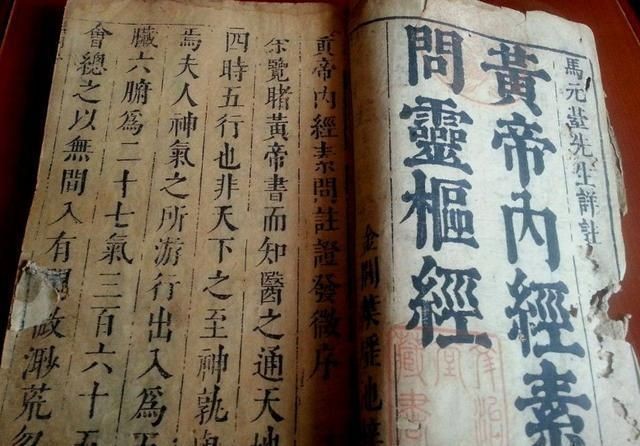 馬元臺先生詳註
黃帝內經素
問靈樞經
金閶葉
黃帝內經素問註證發微序
余覽睹黃帝書而知醫之通天地
四時五行也非天下之至神孰
焉夫人神氣之所游行出入為五
臟六腑為二十七氣三百六十五
會總之以無間入有間故渺荒忽
藏書